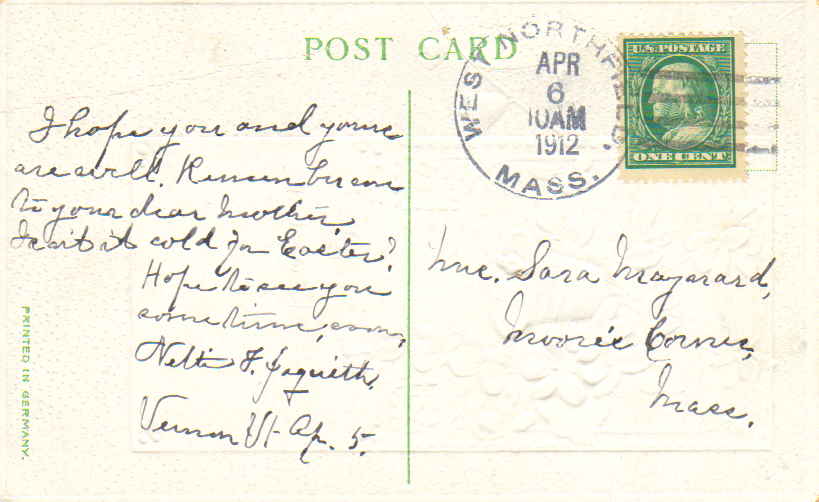 POST CARD
WEST NORTHFIELD.
APR
6
10AM
1912
MASS.
U.S. POSTAGE
ONE CENT
I hope you and yours
are well. Remember me
to your dear Mother,
Isn't it cold for Easter?
Hope to see you
sometime soon,
Nettie F. Jaquith.
Vernon Vt. Ap. 5.
Mrs. Sara Maynard,
Moores Corner,
Mass.
PRINTED IN GERMANY.